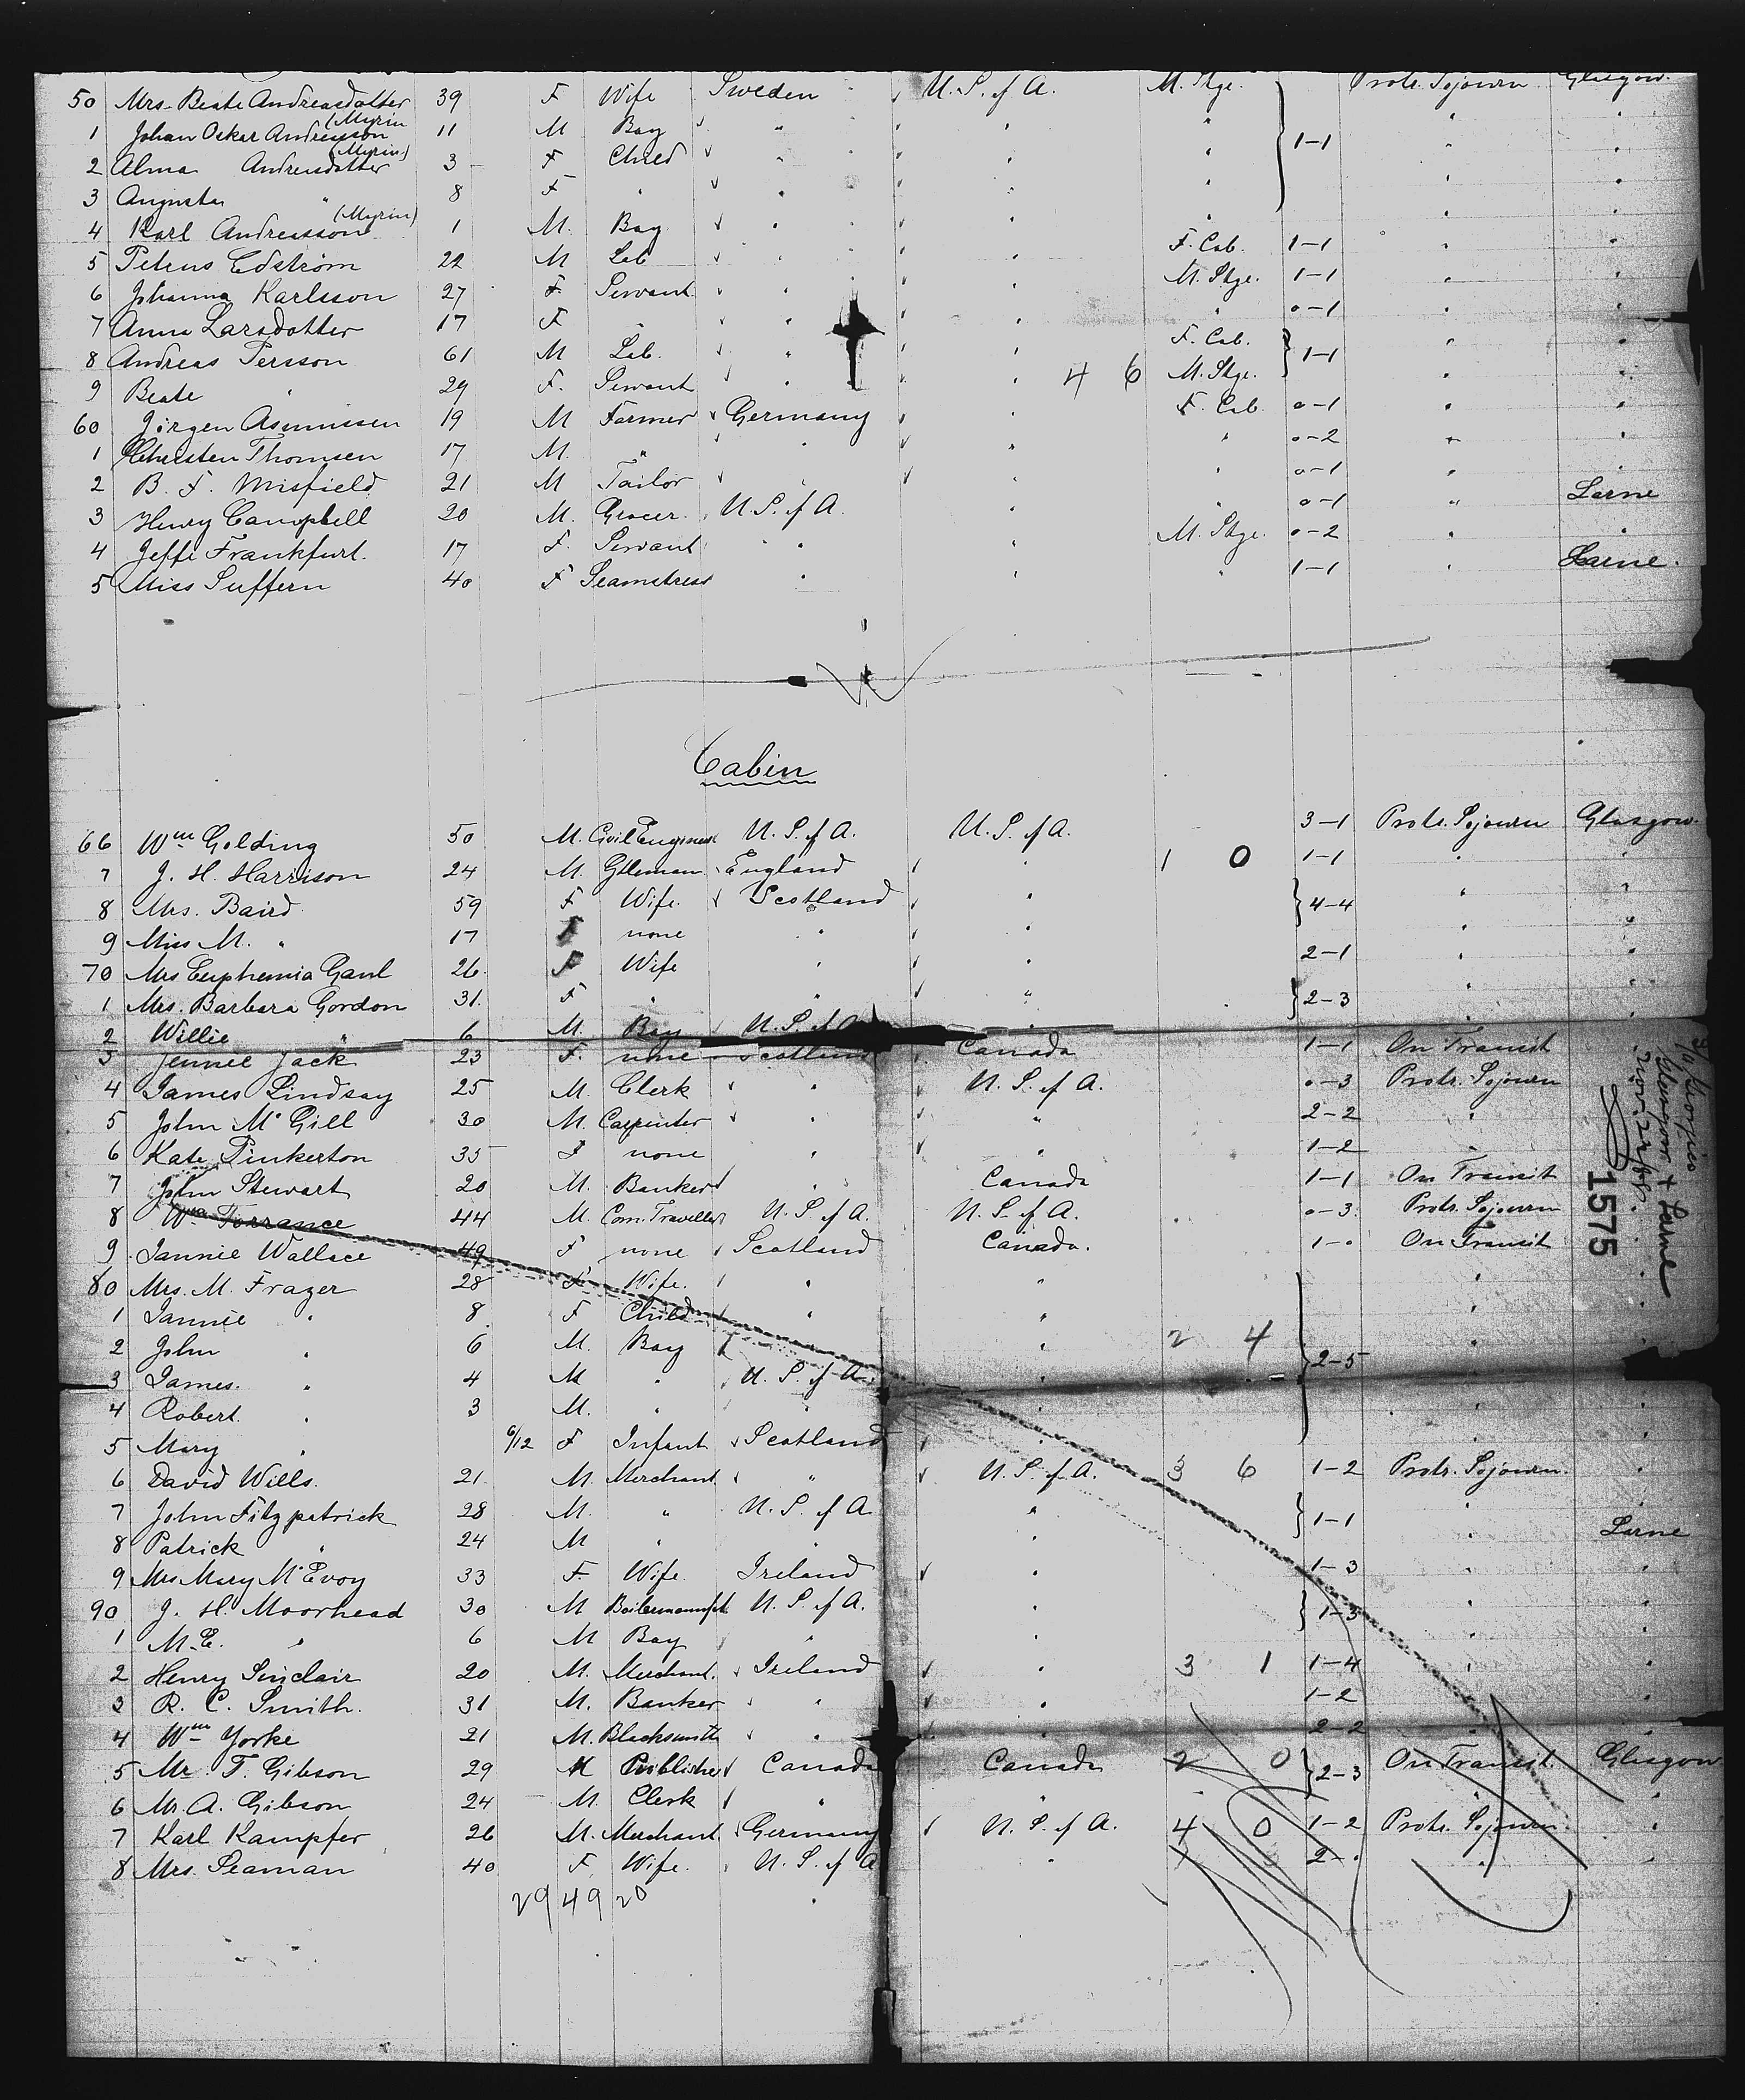 50 Mrs. Beate Andreasdotter 39 F Wife Sweden U.S. of A. M. Stge. Protr. Sojourn Glasgow.
(Myrin
1 Johan Oskar Andreasson 11 M Boy " " " 1-1 " "
(Myrin)
2 Alma Andreasdotter 3 F Child " " " " "
3 Augusta " 8 F " " " " " "
(Myrin)
4 Karl Andreasson 1 M. Boy " " " " "
5 Petrus Edström 22 M Lab " " F. Cab. 1-1 " "
6 Johanna Karlsson 27 F. Servant " " M. Stge. 1-1 " "
7 Anna Larsdotter 17 F " " " " 0-1 " "
8 Andreas Persson 61 M Lab. " " F. Cab. 1-1 " "
9 Beate " 29 F. Servant " " 4 6 M. Stge. " "
60 Jörgen Asmussen 19 M Farmer Germany " F. Cab. 0-1 " "
1 Christen Thomsen 17 M. " " " " 0-2 " "
2 B. F. Misfield 21 M Tailor " " " 0-1 " "
3 Henry Campbell 20 M. Grocer U.S. of A. " " 0-1 " Larne
4 Jeffe Frankfurt. 17 F. Servant " " M. Stge. 0-2 " "
5 Miss Suffern 40 F Seamstress " " " 1-1 " Larne.
Cabin
66 Wm Golding 50 M. Civil Engineer U.S. of A. U.S. of A. 3-1 Protr. Sojourn Glasgow.
7 J. H. Harrison 24 M. Gtleman England " 1 0 1-1 " "
8 Mrs. Baird 59 F Wife. Scotland " 4-4 " "
9 Miss M. " 17 F none " " " "
70 Mrs Euphemia Gaul 26 F Wife " " 2-1 " "
1 Mrs. Barbara Gordon 31. F " " " 2-3 " "
2 Willie " 6 M. Boy U.S. of A. " " "
3 Jennie Jack 23 F. none Scotland Canada 1-1 On Transit "
4 James Lindsay 25 M. Clerk " U.S. of A. 0-3 Protr. Sojourn
5 John McGill 30 M. Carpenter " " 2-2 "
6 Kate Pinkerton 35 F none " " 1-2 "
7 John Stewart 20 M. Banker " Canada 1-1 On Transit
8 Wm Torrance 44 M. Com. Traveller U.S. of A. U.S. of A. 0-3. Protr. Sojourn
9 Jannie Wallace 49 F none Scotland Canada. 1-0 On Transit
1575
Glasgow + Larne
80 Mrs. M. Frazer 28 F Wife. " " " "
1 Jannie " 8 F Child " " " "
2 John " 6 M. Boy " " 2 4 " "
3 James. " 4 M " U.S. of A. " 2-5 "
4 Robert. " 3 M. " " " " "
5 Mary " 6/12 F Infant Scotland " " "
6 David Wills. 21. M. Merchant " U.S. of A. 3 6 1-2 Protr. Sojourn. "
7 John Fitzpatrick 28 M. " U.S. of A. " 1-1 " "
8 Patrick " 24 M " " " " Larne
9 Mrs Mary McEvoy 33 F. Wife Ireland " 1-3 " "
90 J. H. Moorhead 30 M Boilermanufct. U.S. of A. " 1-3 " "
1 M. E. " 6 M Boy " " " "
2 Henry Sinclair 20 M. Merchant. Ireland " 3 1 1-4 " "
3 R. C. Smith. 31 M. Banker " " 1-2 " "
4 Wm Yorke 21 M. Blacksmith " " 2-2 " "
5 Mr. T. Gibson 29 M Publisher Canada Canada 2 0 2-3 On Transit. Glasgow
6 Mr. A. Gibson 24 M. Clerk " " " "
7 Karl Kampfer 26 M. Merchant. Germany U.S. of A. 4 0 1-2 Protr. Sojourn. "
8 Mrs. Seaman 40 F Wife. U.S. of A " " "
29 49 20